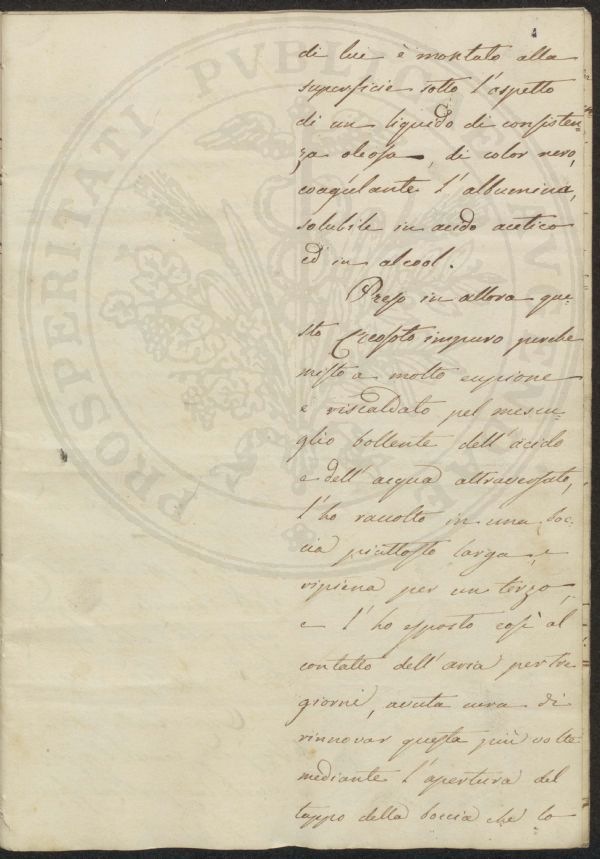 di lui è montato alla
superficie sotto l'aspetto
di un liquido di consisten=
za oleosa, di color nero,
coagulante l'albumina,
solubile in acido acetico
ed in alcool.
Preso in allora que=
sto Creosoto impuro perchè
misto a molto eupione
e riscaldato pel mescu=
glio bollente dell'acido
e dell'acqua attraversato,
l'ho raccolto in una boc=
cia piuttosto larga, e
ripiena per un terzo,
e l'ho esposto così al
contatto dell'aria per tre
giorni, avuta cura di
rinnovar questa più volte
mediante l'apertura del
tappo della boccia che lo
PROSPERITATI PVBLICAE